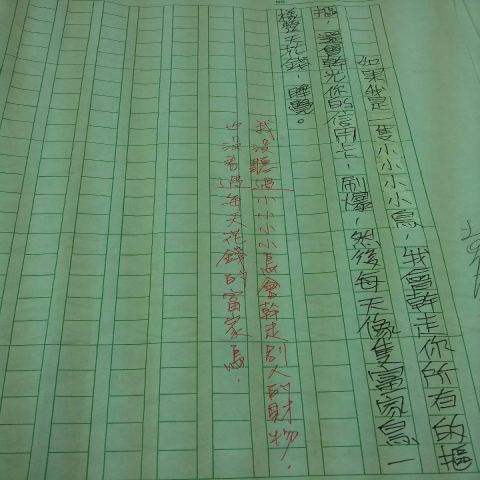 如果我是一隻小小小小鳥，我會幹走你所有的摳
摳，還會幹光你的信用卡，刷爆，然後每天像隻富家鳥一
樣整天花錢，睡覺。
我沒聽過小小小小鳥會幹走別人的財物.
也沒看過每天花錢的富家鳥.